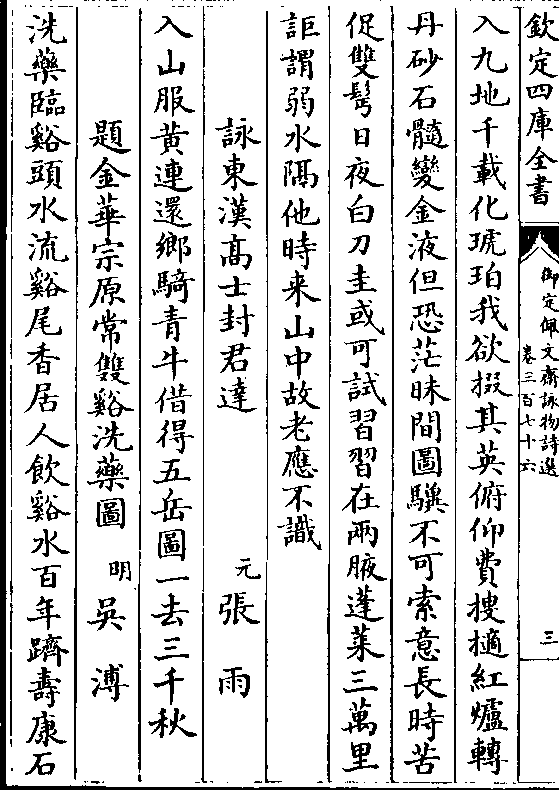 欽定四庫全書
御定佩文齋詠物詩選
卷三百七十六
三
入九地千載化琥珀我欲掇其英俯仰費搜擿紅爐轉
丹砂石髓變金液但恐茫昧間圖驥不可索意長時苦
促雙髩日夜白刀圭或可試習習在兩腋蓬萊三萬里
詎謂弱水隔他時来山中故老應不識
詠東漢高士封君達
元
張雨
入山服黃連還鄉騎青牛借得五岳圖一去三千秋
題金華宗原常雙谿洗藥圖
明
吳溥
洗藥臨谿頭水流谿尾香居人飲谿水百年躋壽康石